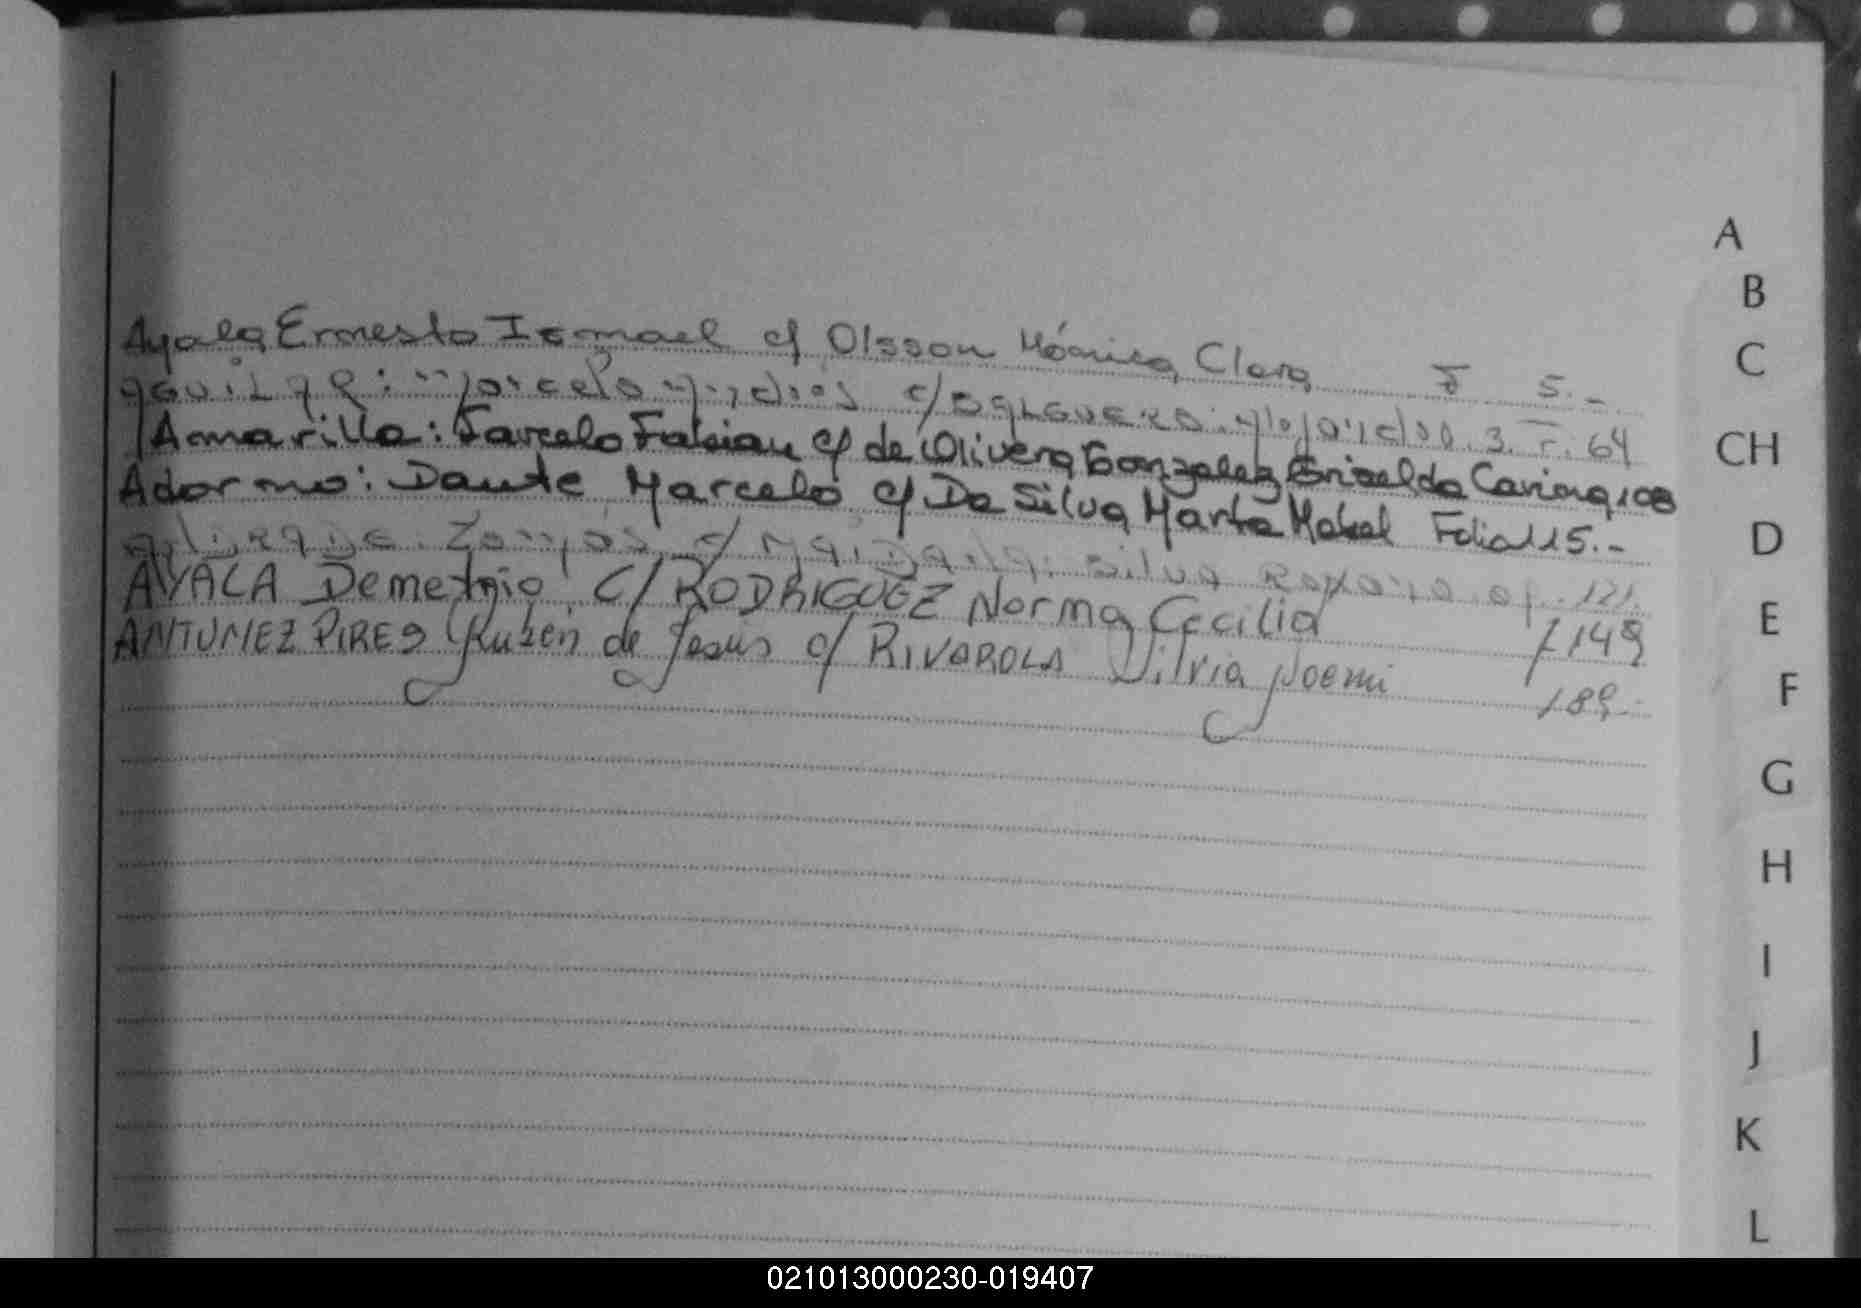 Ayala Ernesto Ismael c/ Olsson Mónica Clara F 5.-
Aguilar: Marcelo c/ Aguero: F. 64
Amarilla: Marcelo Fabian c/ de Olivera Gonzalez Griselda Carina 108
Adorno: Dante Marcelo c/ Da Silva Marta Mabel Folio 115.-
c/ Silva 121.
AYALA Demetrio C/ RODRIGUEZ Norma Cecilia f 149
ANTUNEZ PIRES Ruben de Jesus c/ RIVAROLA Silvia Noemi 189.-
A
B
C
CH
D
E
F
G
H
I
J
K
L
021013000230-019407